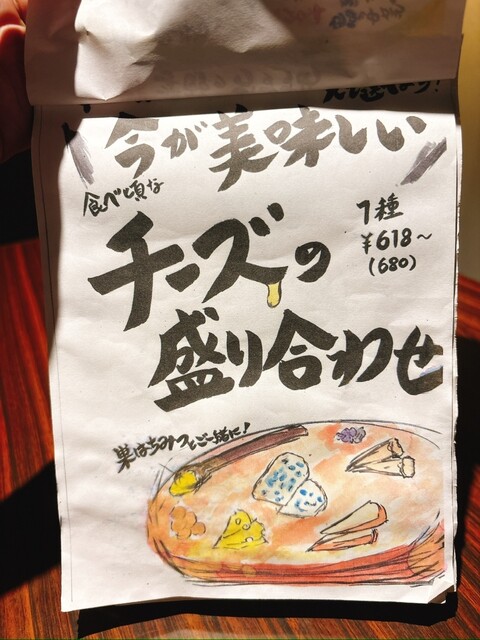 今が美味しい
食べ頃な
チーズの
1種
¥618～
(680)
盛り合わせ
巣はちみつとご一緒に!